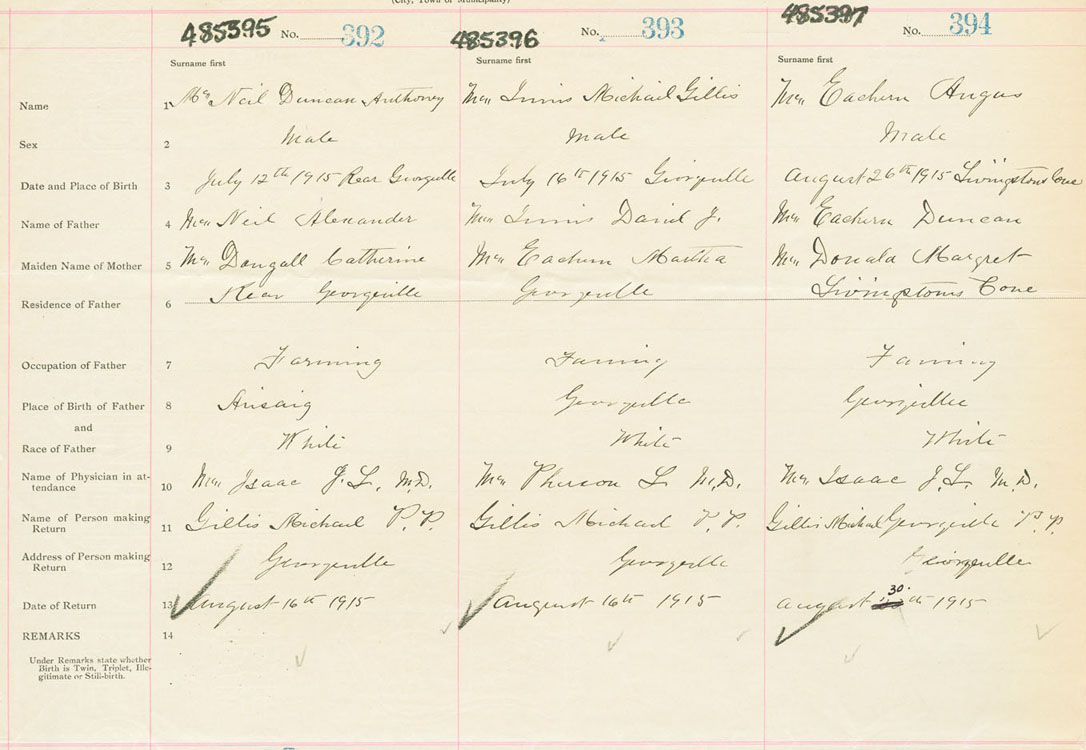 (City, Town or Municipality)
485395 No. 392 485396 No. 393 485397 No. 394
Surname first Surname first Surname first
Name 1 Mc Neil Duncan Anthoney Mac Innis Michael Gillis Mac Eachern Angus
Sex 2 Male Male Male
Date and Place of Birth 3 July 12th 1915 Rear Georgeville July 16th 1915 Georgeville August 26th 1915 Livingstons Cove
Name of Father 4 Mac Neil Alexander Mac Innis David J. Mac Eachern Duncan
Maiden Name of Mother 5 Mac Dougall Catherine Mac Eachern Martha Mac Donald Margret
Residence of Father 6 Rear Georgeville Georgeville Livingstons Cove
Occupation of Father 7 Farming Farming Farming
Place of Birth of Father 8 Arisaig Georgeville Georgeville
and
Race of Father 9 White White White
Name of Physician in at-
tendance 10 Mac Isaac J. L. M.D. Mac Pherson L M.D. Mac Isaac J. L. M.D.
Name of Person making
Return 11 Gillis Michael P.P. Gillis Michael P.P. Gillis Michael Georgeville P.P.
Address of Person making
Return 12 Georgeville Georgeville Georgeville
Date of Return 13 August 16th 1915 August 16th 1915 August 30th 1915
REMARKS 14
Under Remarks state whether
Birth is Twin, Triplet, Ille-
gitimate or Still-birth.